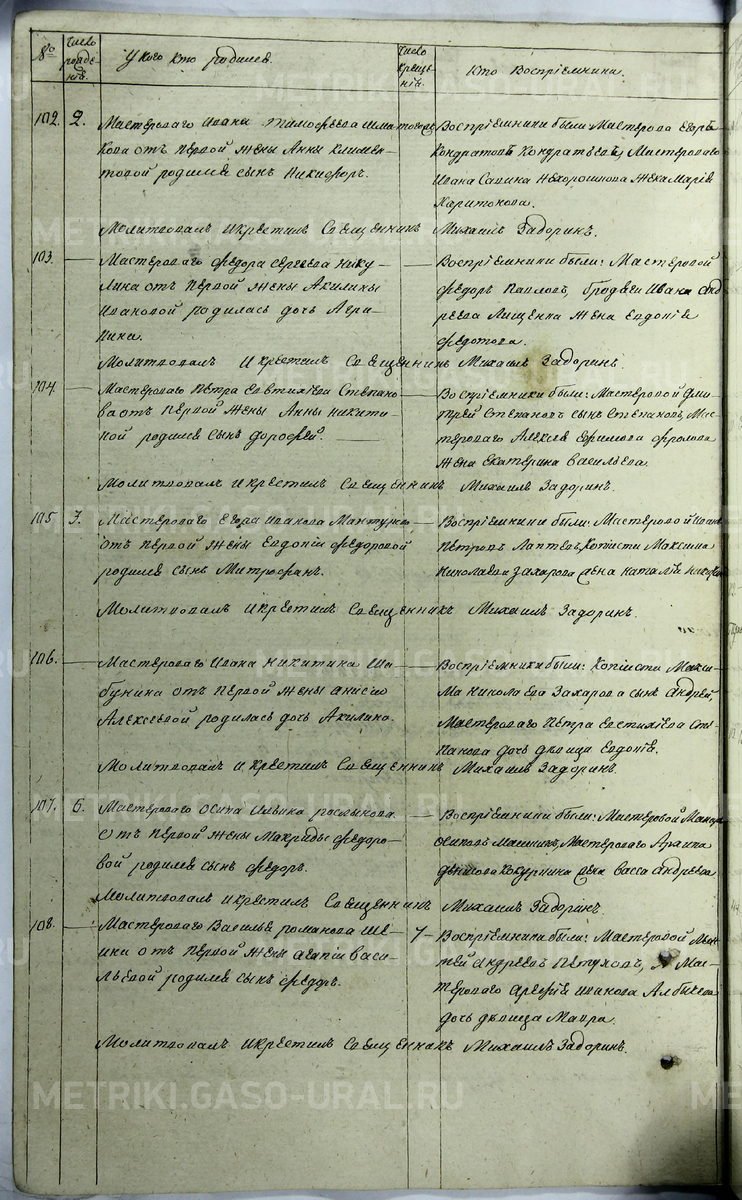 №
Число рожде-нiѣ.
У кого кто родился.
Число креще-нiѣ.
Кто Воспрiемники.
102. 2. Мастероваго Ивана Тимофеева
кова отъ первой жены Анны Климен-
товой родился сынъ Никифоръ.
Воспрiемники были: Мастерова Егоръ
Кондратовъ Кондратьевъ, Мастероваго
Ивана Савина Нехорошкова жена Марiя
Харитонова.
Молитвовалъ и крестилъ Священникъ Михаилъ Задоринъ.
103. — Мастероваго Федора Сергеева Нику-
лина отъ первой жены Акилины
Ивановой родилась дочь Агри-
пина.
— Воспрiемники были: Мастеровой
Федоръ Павловъ, бродяги Ивана Анд
реева Лищенка жена Евдокiя
Федотова.
Молитвовалъ и крестилъ Священникъ Михаилъ Задоринъ.
104. — Мастероваго Петра Евтихiева Степано
ва отъ первой жены Анны Никити-
ной родился сынъ Дорофей. —
— Воспрiемники были: Мастеровой Дми-
трей Степановъ сынъ Степановъ, Мас-
тероваго Алексея Ефимова Фролова
жена Екатерина Васильева.
Молитвовалъ и крестилъ Священникъ Михаилъ Задоринъ.
105 3. Мастероваго Егора Иванова Мантурова
отъ первой жены Евдокiи Федоровой
родился сынъ Митрофанъ.
— Воспрiемники были: Мастеровой Иванъ
Петровъ Лаптевъ, Копiиста Максима
Николаева Захарова жена Наталiя
Молитвовалъ и крестилъ Священникъ Михаилъ Задоринъ.
106. — Мастероваго Ивана Никитина Ша-
бунина отъ первой жены Анисiи
Алексеевой родилась дочь Акилина.
— Воспрiемники были: Копiиста Макси-
ма Николаева Захарова сынъ Андрей,
Мастероваго Петра Евстихiева Сте-
панова дочь девица Евдокiя.
Молитвовалъ и крестилъ Священникъ Михаилъ Задоринъ.
107. 6. Мастероваго Осипа Ильина Рослякова
отъ первой жены Макриды Федоро-
вой родился сынъ Федоръ.
— Воспрiемники были: Мастеровой Макаръ
Осиповъ Мастероваго Архипа
Денисова жена Васса Андреева
Молитвовалъ и крестилъ Священникъ Михаилъ Задоринъ.
108. — Мастероваго Василья Романова Ше-
ина отъ первой жены Агапiи Васи-
льевой родился сынъ Федоръ.
7 — Воспрiемники были: Мастеровой
Андреевъ Петуховъ, и Мас-
тероваго Арефiя Иванова Албычева
дочь девица Мавра.
Молитвовалъ и крестилъ Священникъ Михаилъ Задоринъ.
METRIKI.GASO-URAL.RU